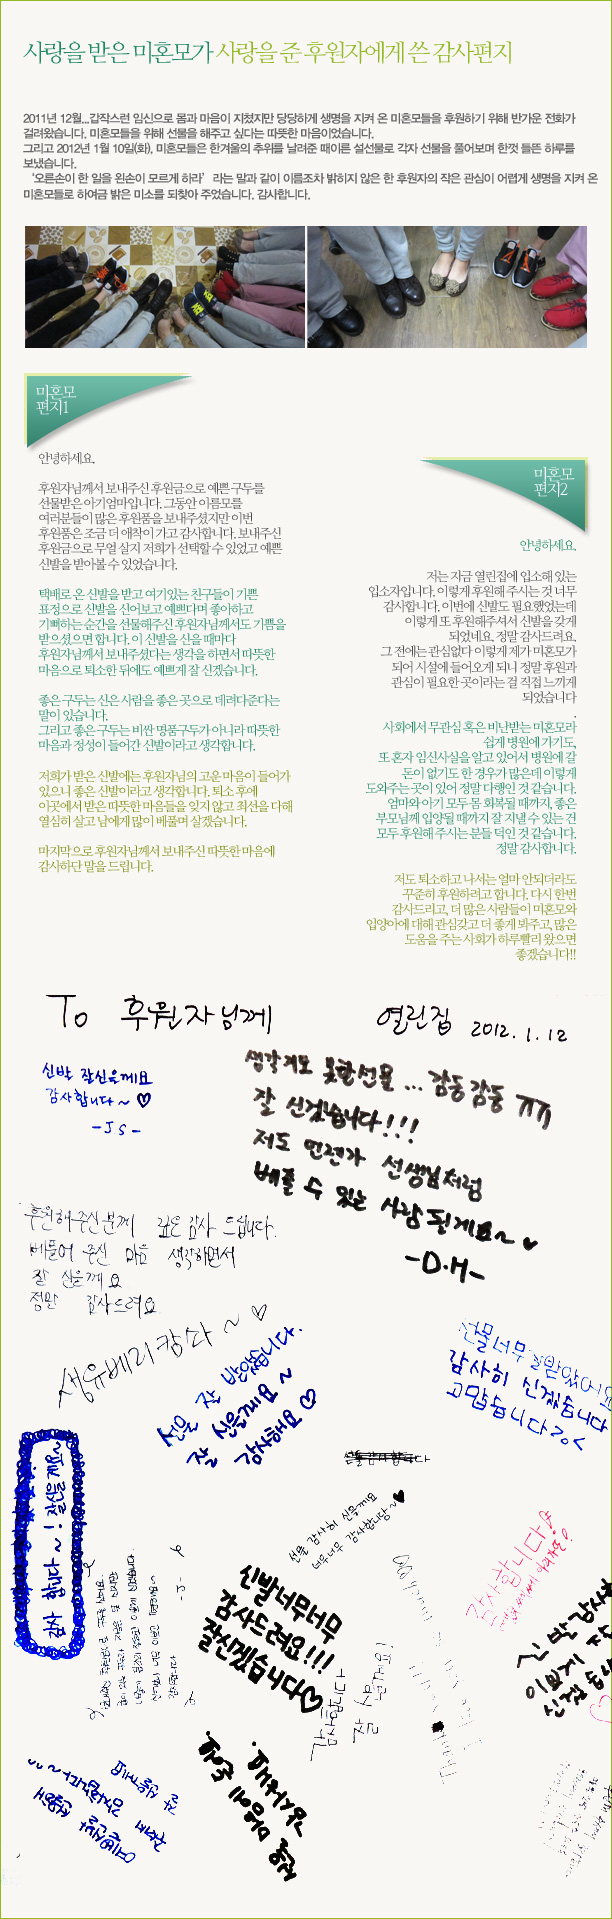 사랑을 받은 미혼모가 사랑을 준 후원자에게 쓴 감사편지
2011년 12월...갑작스런 임신으로 몸과 마음이 지쳤지만 당당하게 생명을 지켜 온 미혼모들을 후원하기 위해 반가운 전화가
걸려왔습니다. 미혼모들을 위해 선물을 해주고 싶다는 따뜻한 마음이었습니다.
그리고 2012년 1월 10일(화), 미혼모들은 한겨울의 추위를 날려준 때이른 설선물로 각자 선물을 풀어보며 한껏 들뜬 하루를
보냈습니다.
‘오른손이 한 일을 왼손이 모르게 하라’ 라는 말과 같이 이름조차 밝히지 않은 한 후원자의 작은 관심이 어렵게 생명을 지켜 온
미혼모들로 하여금 밝은 미소를 되찾아 주었습니다. 감사합니다.
미혼모
편지1
안녕하세요.
후원자님께서 보내주신 후원금으로 예쁜 구두를
선물받은 아기엄마입니다. 그동안 이름모를
여러분들이 많은 후원품을 보내주셨지만 이번
후원품은 조금 더 애착이 가고 감사합니다. 보내주신
후원금으로 무얼 살지 저희가 선택할 수 있었고 예쁜
신발을 받아볼 수 있었습니다.
택배로 온 신발을 받고 여기있는 친구들이 기쁜
표정으로 신발을 신어보고 예쁘다며 좋아하고
기뻐하는 순간을 선물해주신 후원자님께서도 기쁨을
받으셨으면 합니다. 이 신발을 신을 때마다
후원자님께서 보내주셨다는 생각을 하면서 따뜻한
마음으로 퇴소한 뒤에도 예쁘게 잘 신겠습니다.
좋은 구두는 신은 사람을 좋은 곳으로 데려다준다는
말이 있습니다.
그리고 좋은 구두는 비싼 명품구두가 아니라 따뜻한
마음과 정성이 들어간 신발이라고 생각합니다.
저희가 받은 신발에는 후원자님의 고운 마음이 들어가
있으니 좋은 신발이라고 생각합니다. 퇴소 후에
이곳에서 받은 따뜻한 마음들을 잊지 않고 최선을 다해
열심히 살고 남에게 많이 베풀며 살겠습니다.
마지막으로 후원자님께서 보내주신 따뜻한 마음에
감사하단 말을 드립니다.
미혼모
편지2
안녕하세요.
저는 지금 열린집에 입소해 있는
입소자입니다. 이렇게 후원해 주시는 것 너무
감사합니다. 이번에 신발도 필요했었는데
이렇게 또 후원해주셔서 신발을 갖게
되었네요. 정말 감사드려요.
그 전에는 관심없다 이렇게 제가 미혼모가
되어 시설에 들어오게 되니 정말 후원과
관심이 필요한 곳이라는 걸 직접 느끼게
되었습니다
.
사회에서 무관심 혹은 비난받는 미혼모라
쉽게 병원에 가기도,
또 혼자 임신사실을 알고 있어서 병원에 갈
돈이 없기도 한 경우가 많은데 이렇게
도와주는 곳이 있어 정말 다행인 것 같습니다.
엄마와 아기 모두 몸 회복될 때까지, 좋은
부모님께 입양될 때까지 잘 지낼 수 있는 건
모두 후원해 주시는 분들 덕인 것 같습니다.
정말 감사합니다.
저도 퇴소하고 나서는 얼마 안되더라도
꾸준히 후원하려고 합니다. 다시 한번
감사드리고, 더 많은 사람들이 미혼모와
입양아에 대해 관심갖고 더 좋게 봐주고, 많은
도움을 주는 사회가 하루빨리 왔으면
좋겠습니다!!
To 후원자님께
열린집 2012. 1. 12
신발 잘신을께요
감사합니다~ ♡
-JS-
생각지도 못한선물 ... 감동감동 ㅠㅠ
잘 신겠습니다!!!
저도 언젠가 선생님처럼
베풀 수 있는 사람 될게요~ ♥
-D.H-
후원해주신분께 깊은 감사 드립니다.
베풀어 주신 마음 생각하면서
잘 신을께요
정말 감사드려요
쌩유베리캄사~ ♡
선물 잘 받았습니다.
잘 신을께요~
감사해요♡
선물너무잘받았어요
감사히 신겠습니다
고맙습니다>o<
잘신을께요~
감사 합니다~!
선물 감사히 신을께요
너무너무 감사합니다~♥
감사합니다
신발너무너무
감사드려요!!!
잘신겠습니다♡
신발 감사
이쁘게